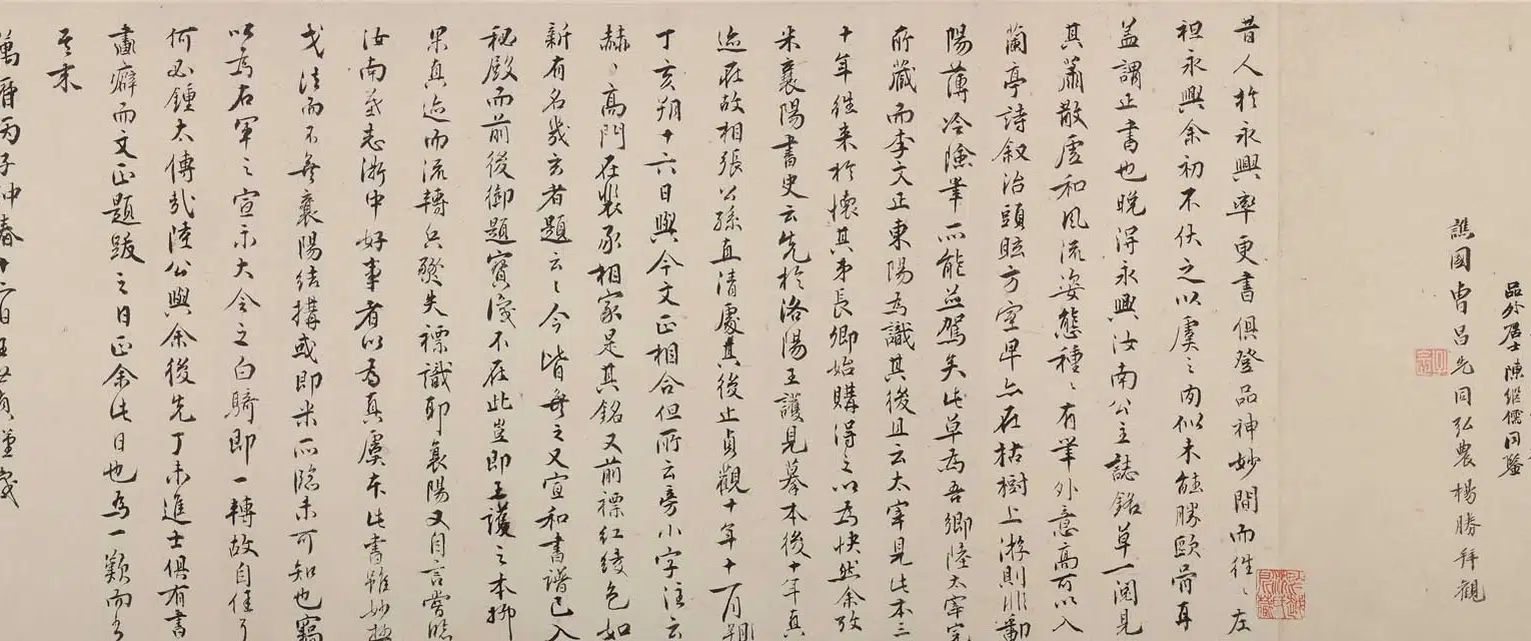 品外居士陳繼儒同鑒
譙國曹吕先同弘農楊勝拜觀
昔人於永興率更書俱登品神妙間而往〻左
袒永興余初不伏之以虞〻肉似未能勝歐骨耳
蓋謂正書也晚得永興汝南公主誌銘草一閱見
其蕭散虛和風流姿態種〻有筆外意高可以入
蘭亭詩叙治頭眩方室卑亦在枯樹上游則非鄱
陽薄冷險筆所能並駕矣此草為吾鄉陸太宰完
所藏而李文正東陽為識其後且云太宰見此本三
十年往来於懷其弟長卿始購得之以為快然余攷
米襄陽書史云先於洛陽王護見摹本後十年真
迹在故相張公孫直清處其後止貞觀十年十一月朔
丁亥朔十六日與今文正相合但所云旁小字注云
赫〻高門在裴丞相家是其銘又前褾紅綾色如
新有名幾玄者題云〻今皆無之又宣和書譜已入
秘殿而前後御題寶識不在此豈即王護之本抑
果真迹而流轉兵燹失褾識耶襄陽又自言嘗臨
汝南等志浙中好事者以為真虞本此書雖妙極
戈法而不無襄陽結搆或即米所臨未可知也竊
以為右軍之宣示大令之白騎即一轉故自佳耳
何必鍾太傅哉陸公與余後先丁未進士俱有書
畫癖而文正題跋之日正余此日也為一歎而
其末
萬曆丙子仲春十日王世貞謹識